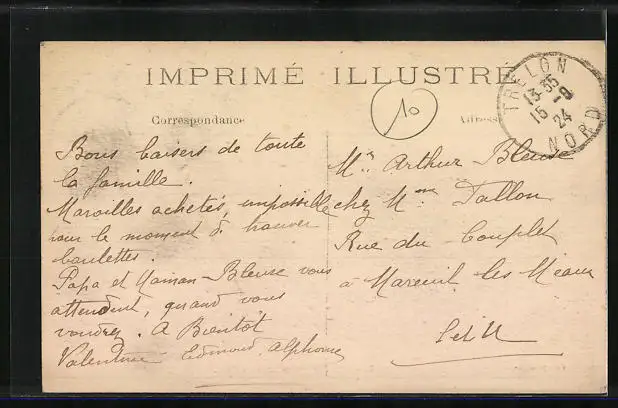 IMPRIMÉ ILLUSTRÉ
Correspondance
Adresse
10
TRELON
13 35
15 -9
24
NORD
Bons baisers de toute
la famille.
Maroilles achetés, impossible
pour le moment d trouver
boulettes.
Papa et Maman Bleuse vous
attendent, quand vous
voudrez. A Bientôt
Valentine Edmond, Alphonse
Mr Arthur Bleuse
chez Mme Tallon
Rue du Couplet
à Mareuil les Meaux
S et M